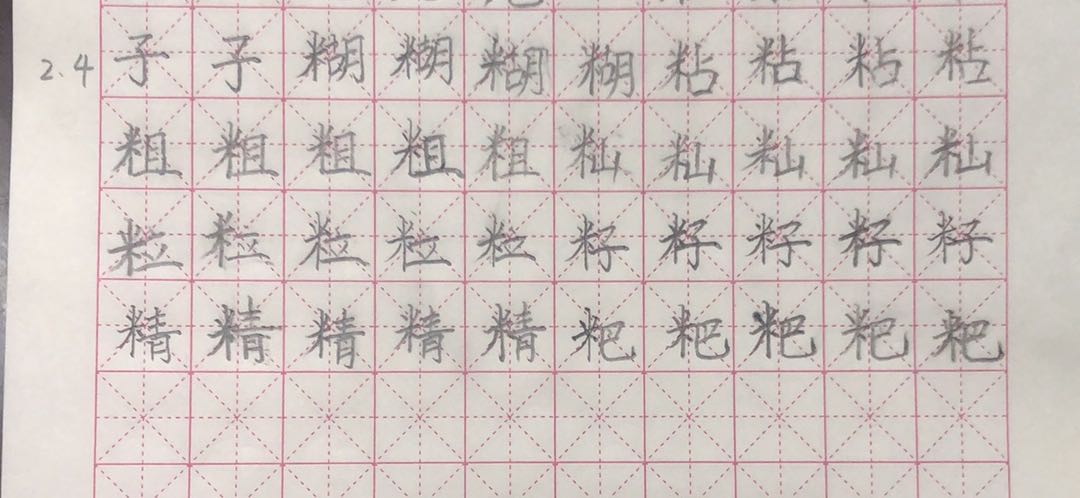 2.4 子子糊糊糊糊粘粘粘粘
粗粗粗粗粗籼籼籼籼籼
粒粒粒粒粒籽籽籽籽籽
精精精精精粑粑粑粑粑